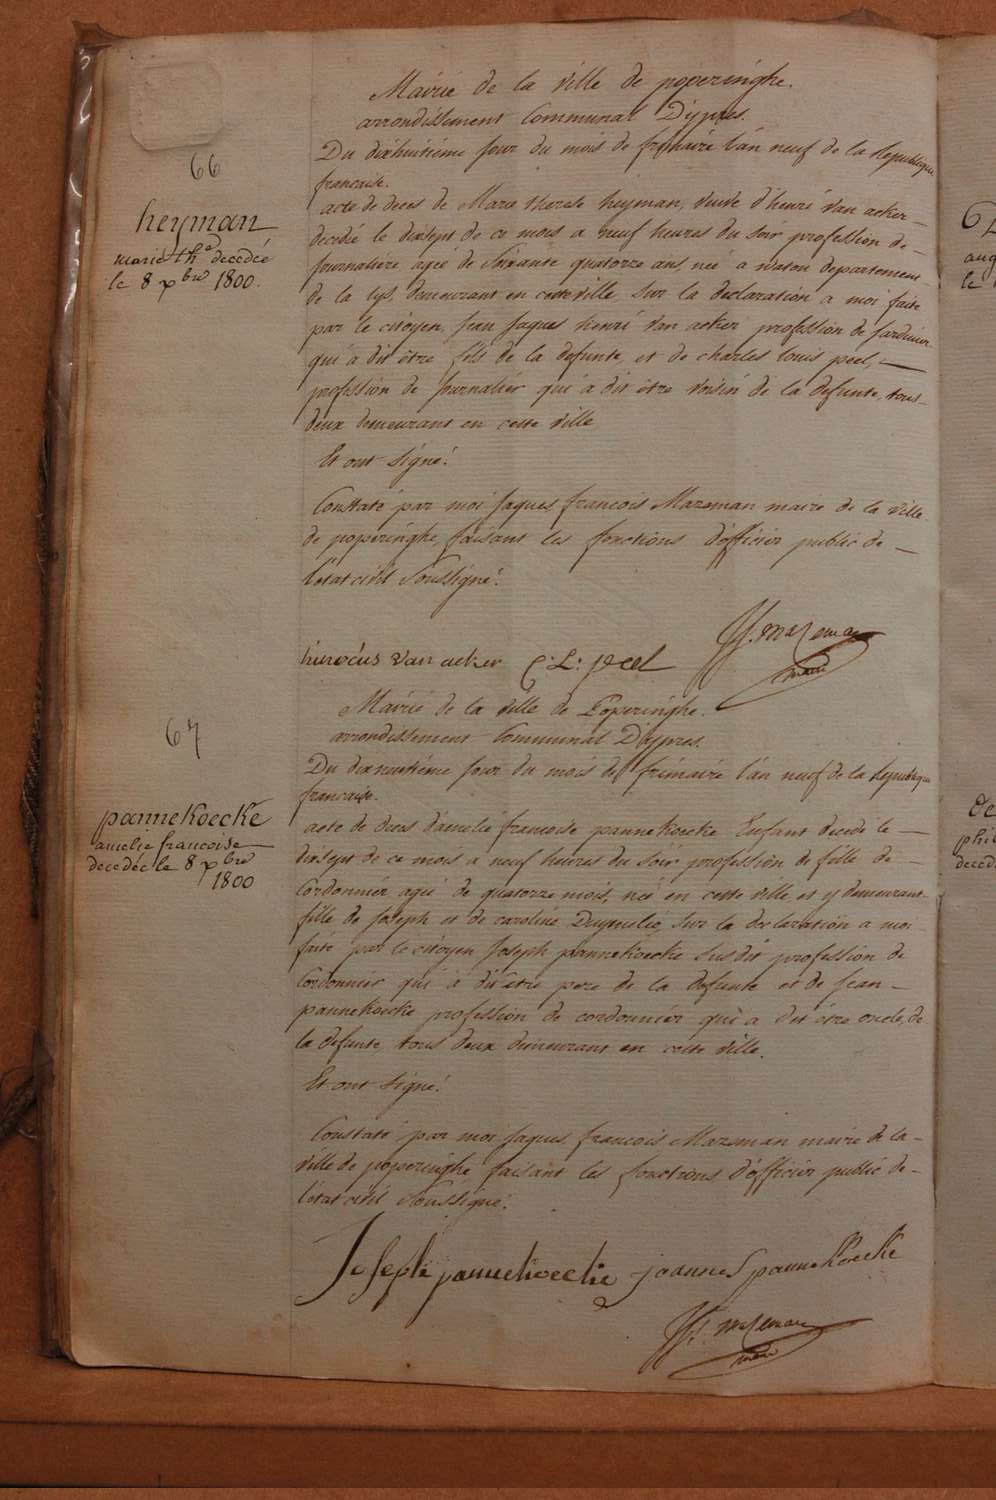 66
heyman
marie th.e decedée
le 8 xbre 1800.
Mairie de la ville de poperinghe.
arrondissement Communal D'ypres.
Du dixhuitieme jour du mois de frimaire l'an neuf de la Republique
francaise.
acte de deces de Marie therese heyman, veuve d'henri van acker
decedée le dixsept de ce mois a neuf heures du soir profession de
journaliere agée de Soixante quatorze ans, neé a watou departement
de la lys, demeurant en cette ville, sur la declaration a moi faite
par le citoyen Jean Jaques henri van acker profession de Jardinier
qui a dit être fils de la defunte, et de charles louis peel,
profession de journalier qui a dit être voisin de la defunte, tous
deux demeurant en cette ville
Et ont signé.
Constaté par moi Jaques francois Mazeman maire de la ville
de poperinghe, faisant les fonctions d'officier public de
l'état civil Soussigné.
J.f. mazeman
maire
van acker C: L: peel
67
pannekoecke
amelie francoise
decedée le 8 xbre
1800
Mairie de la ville de Poperinghe.
arrondissement Communal D'ypres.
Du dixhuitieme jour du mois de frimaire l'an neuf de la Republique
francaise.
acte de deces d'amelie francoise pannekoecke Enfant decedé le
dixsept de ce mois a neuf heures du soir profession de fille de
Cordonnier ageé de quatorze mois, neé en cette ville et y demeurant
fille de Joseph et de caroline sur la declaration a moi
faite par le citoyen Joseph pannekoecke susdit profession de
Cordonnier qui a dit être pere de la defunte et de Jean
pannekoecke profession de cordonnier qui a dit être oncle de
la defunte, tous deux demeurant en cette ville.
Et ont signé.
Constaté par moi Jaques francois Mazeman maire de la
ville de poperinghe faisant les fonctions d'officier public de
l'état civil Soussigné.
Joseph pannekoecke joannes pannekoecke
J.f. mazeman
maire